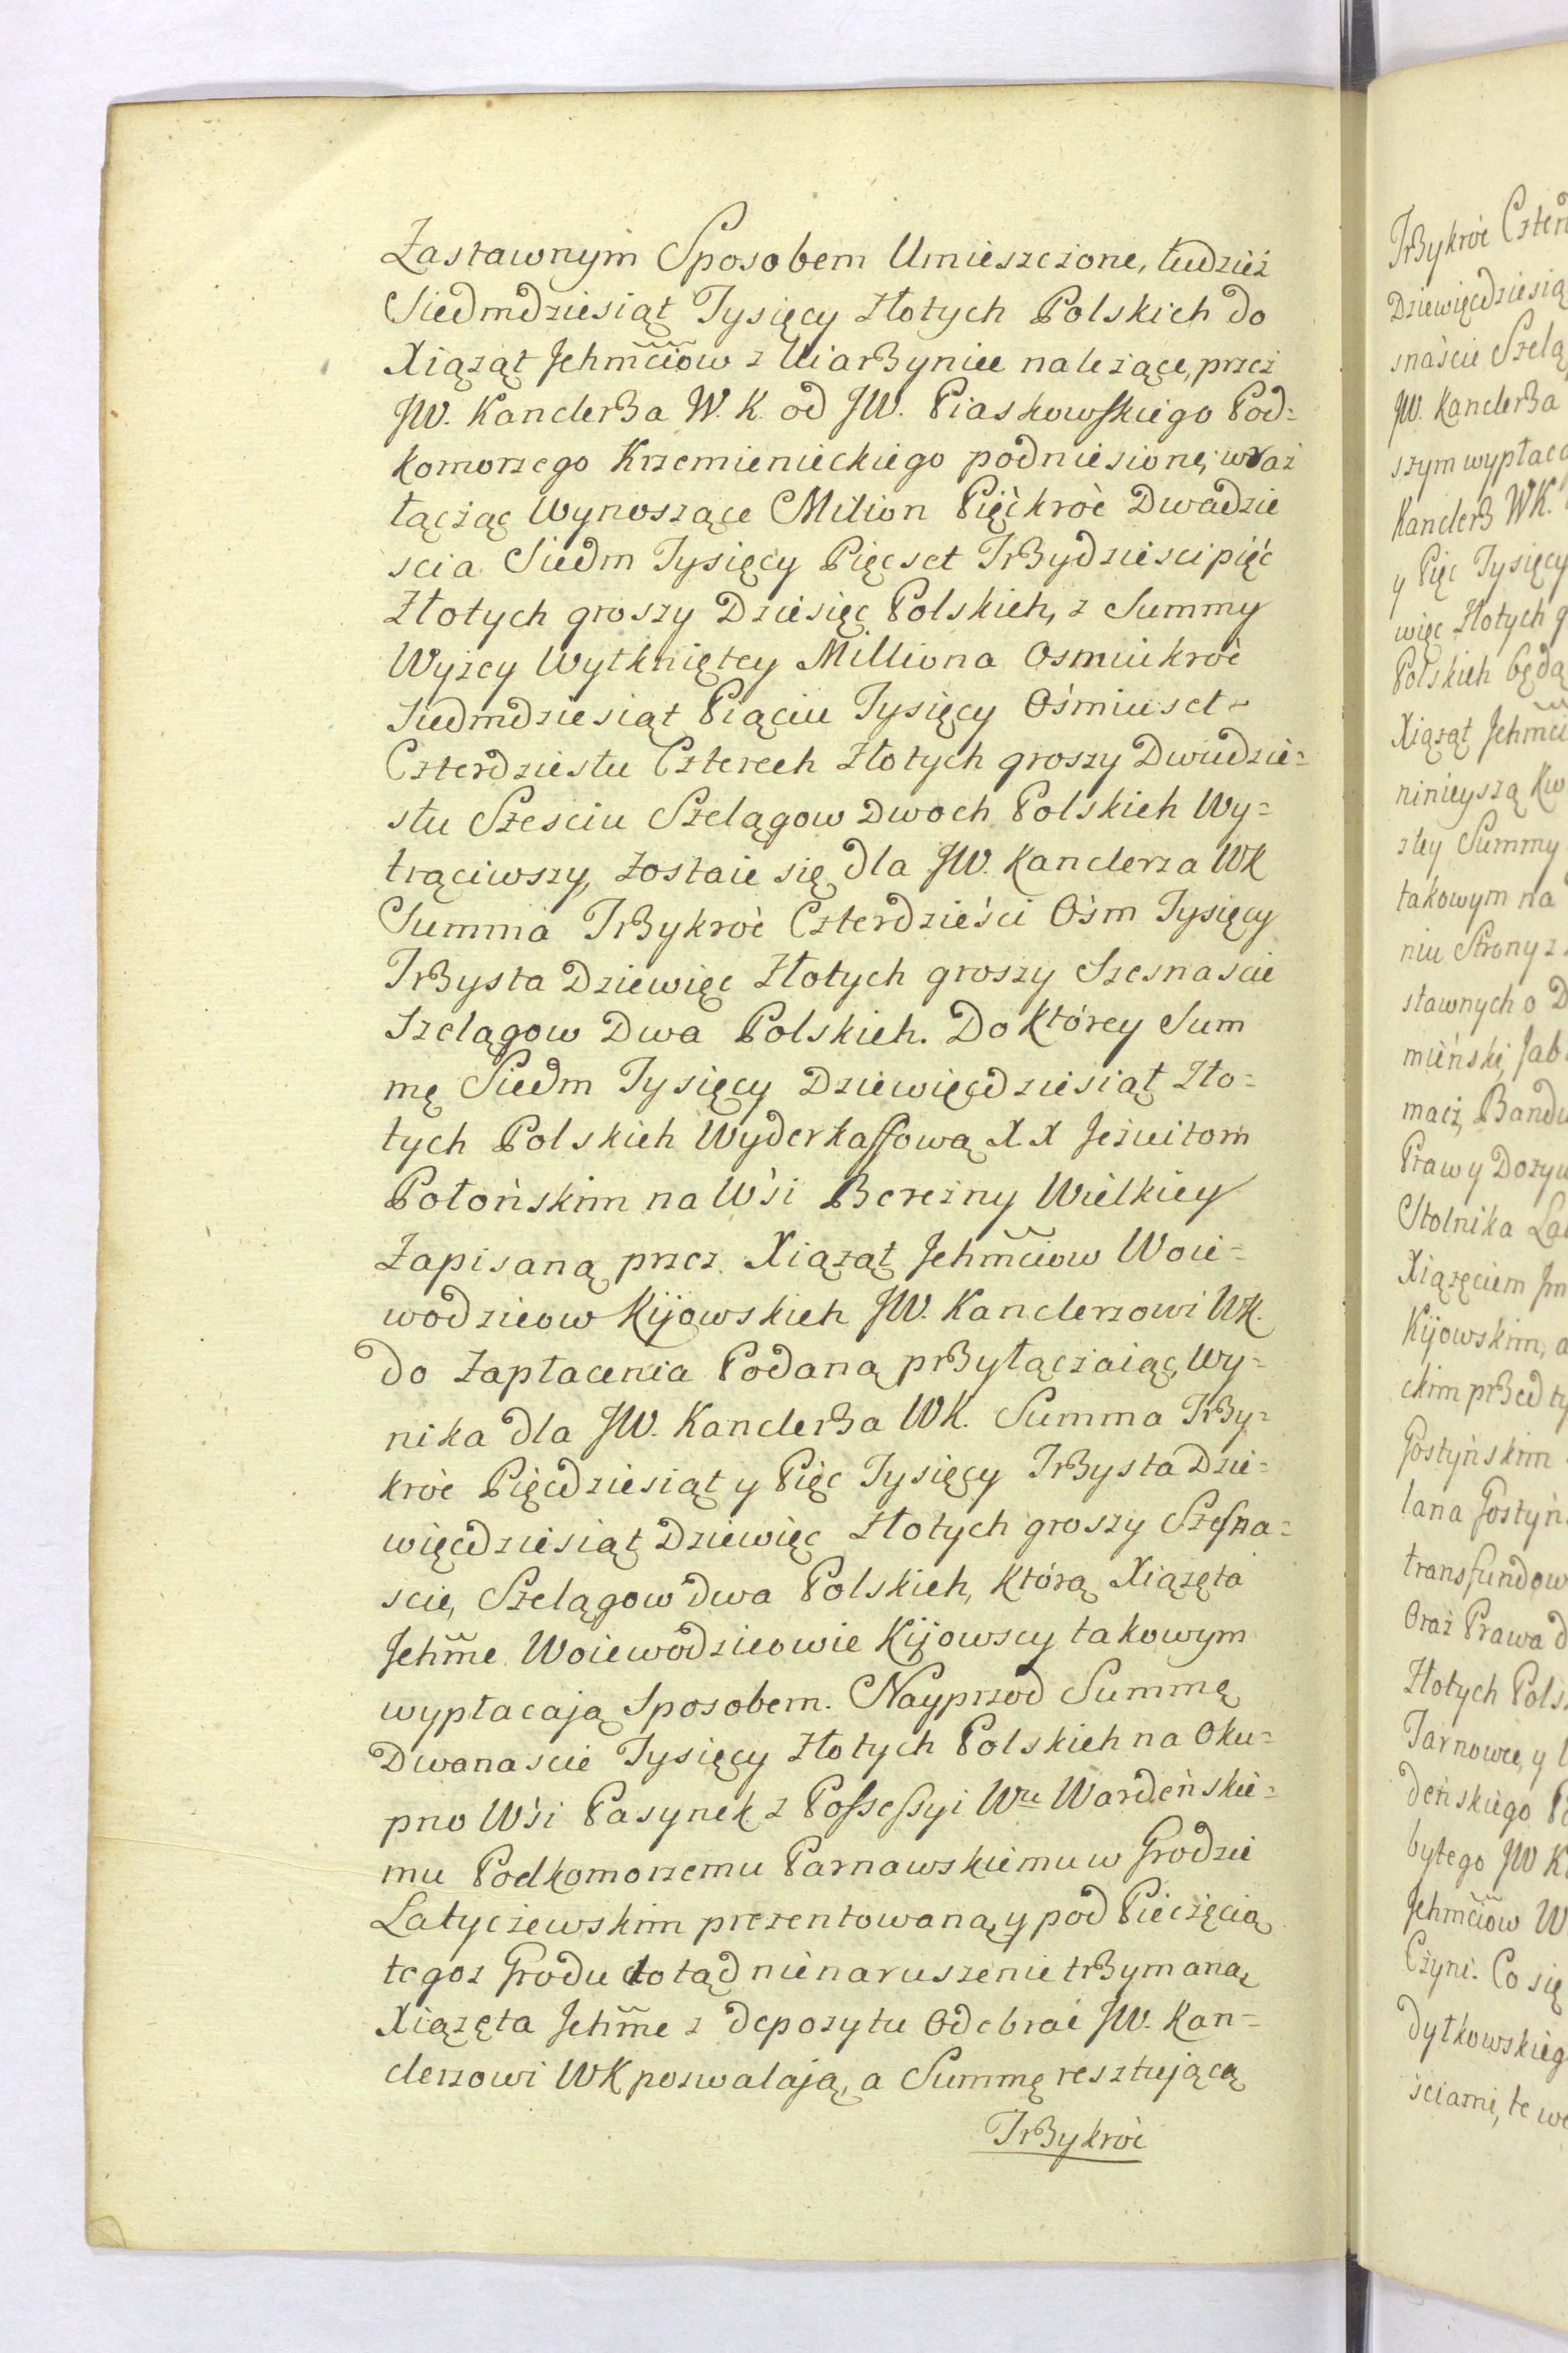 Zastawnym Sposobem Umieszczone, tudzież
Siedmdziesiąt Tysięcy Złotych Polskich do
Xiążąt Jehmćiow z Uiarzyniec należące, przez
JW. Kanclerza W. K. od JW. Piaskowskiego Pod=
komorzego Krzemienieckiego podniesione, wraz
łącżąc Wynoszące Milion Pięćkroć Dwadzie
scia Siedm Tysięcy Pięcset Trzydziesci pięć
Złotych groszy Dziesięc Polskich, z Summy
Wyżey Wytkniętey Milliona Osmiukroć
Siedmdziesiąt Piąciu Tysięcy Ośmiuset-
Czterdziestu Czterech Złotych groszy Dwudzie=
stu Szesciu Szelągow Dwoch Polskich Wy=
trąciwszy, Zostaie się dla JW. Kanclerza WK
Summa Trzykroć Czterdzieści Ośm Tysięcy
Trzysta Dziewięc Złotych groszy Szesnascie
Szelągow Dwa Polskich. Do Którey Sum
mę Siedm Tysięcy Dziewięcdziesiąt Zło=
tych Polskich Wyderkassową XX Jezuitom
Połońskim na Wśi Berezny Wielkiey
Zapisaną przez Xiążąt Jehmćiow Woie=
wodzicow Kijowskich JW. Kanclerzowi WK.
do Zapłacenia Podaną przyłączaiąc, Wy=
nika dla JW. Kanclerza WK. Summa Trzy=
kroć Pięcdziesiąt y Pięc Tysięcy Trzysta Dzie=
więcdziesiąt Dziewięc Złotych groszy Szesna=
scie, Szelągow dwa Polskich, Którą Xiążęta
Jehmć Woiewodzicowie Kijowscy takowym
wypłacają Sposobem. Nayprzod Summę
Dwanascie Tysięcy Złotych Polskich na Oku=
pno Wśi Pasynek z Possessyi Wu Wardeńskie=
mu Podkomorzemu Parnawskiemu w Grodzie
Latyczewskim prezentowaną, y pod Pieczęcią
tegoz Grodu dotąd nienaruszenie trzymaną,
Xiążęta Jehmć z depozytu Odebrać JW. Kan=
clerzowi WK pozwalają, a Summę resztującą
Trzykroć
Trzykroć
JW. Kanclerza
Kanclerz WK.
y Pięc Tysięcy
więc Złotych
Polskich będą
Xiążąt
ninieyszą
ztey Summy
takowym na
niu Strony
Prawy
Stolnika
Xiążęciem
Kijowskim,
Gostyńskim
Oraz Prawa
Złotych
deńskiego
bytego JW
Czyni. Co się
ściami, te